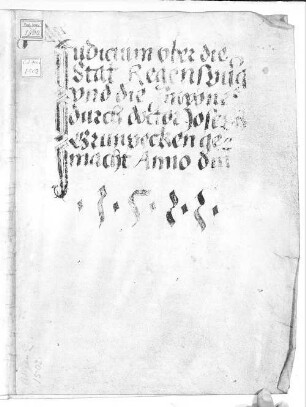 Judicium vber die
Stat Regenspurg
vnd die Inwoner
durch doctor Joseph
Grunpecken ge=
macht Anno dni
· 1 · 5 · 2 · 2 ·